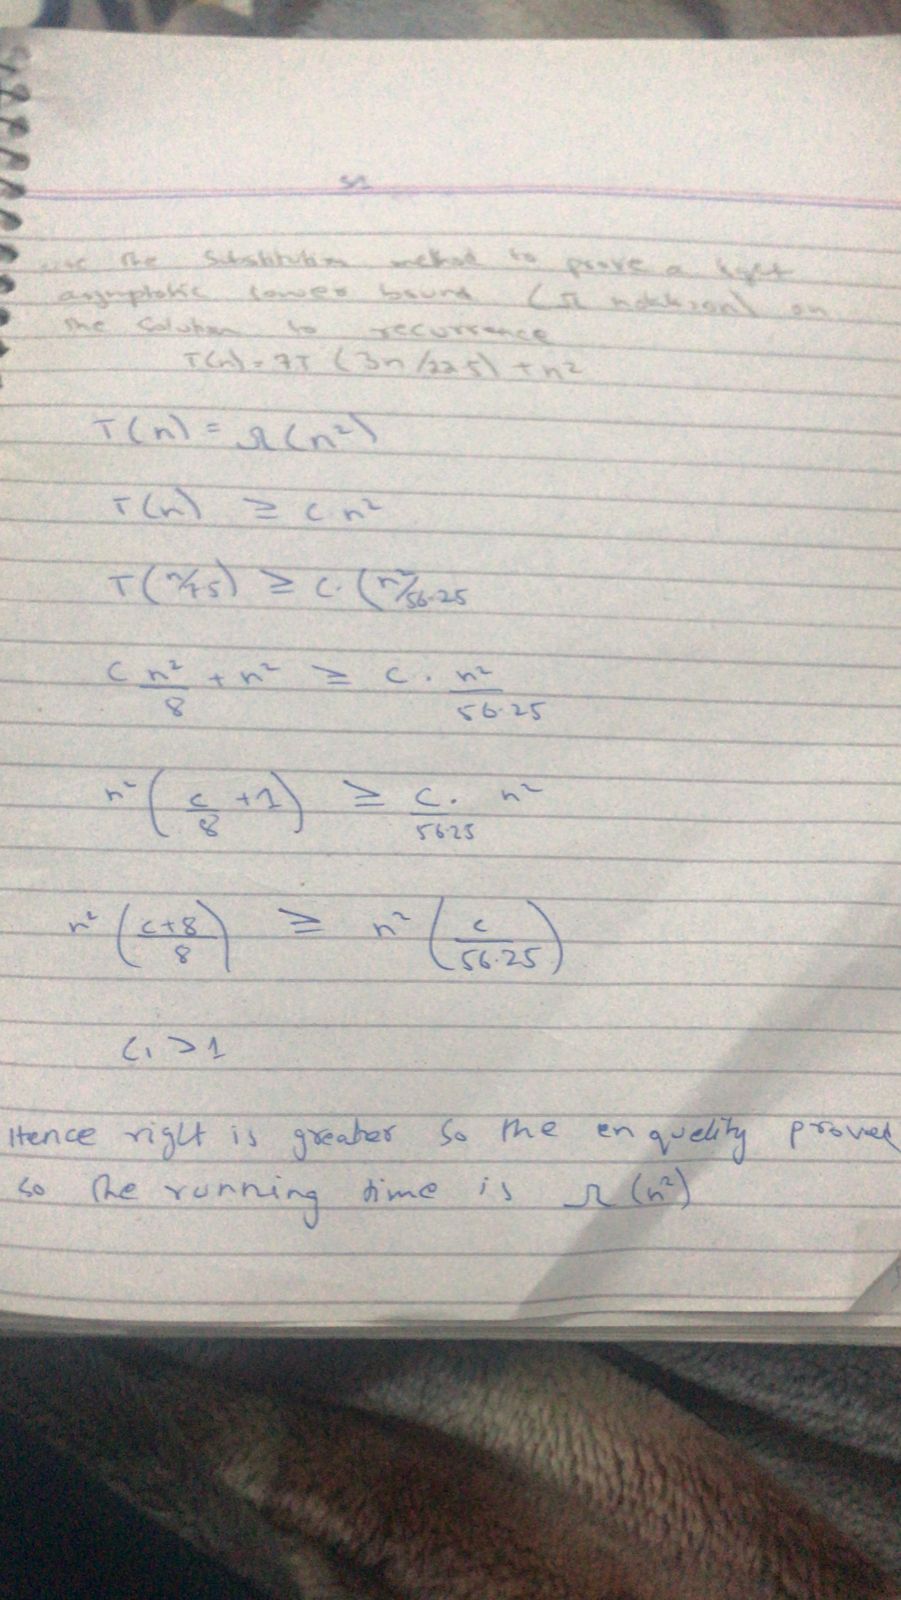 use the Substitution method to prove a tight
asymptotic lower bound (Ω notation) on
the solution to recurrence
T(n) = 7T (3n/22.5) + n²
T(n) = Ω(n²)
T(n) ≥ c n²
T(n/7.5) ≥ c. (n²/56.25
c n²/8 + n² ≥ c . n²/56.25
n² (c/8 + 1) ≥ c/56.25 . n²
n² (c+8/8) ≥ n² (c/56.25)
c₁ > 1
Hence right is greater so the enquelity proved
so the running time is Ω(n²)